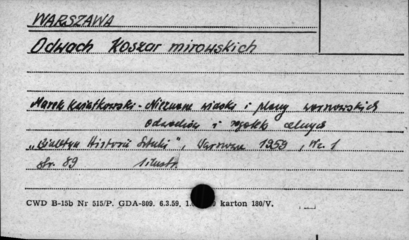 WARSZAWA
Odwach Koszar mirowskich
Marek Kwiatkowski - Nieznane widoki i plany warszawskich
odwachów i rogatek celnych
„Biuletyn Historii Sztuki", Warszawa 1958, Nr. 1
Str. 89 ilustr.
CWD B-15b Nr 515/P. GDA-809. 6.3.59. karton 180/V.